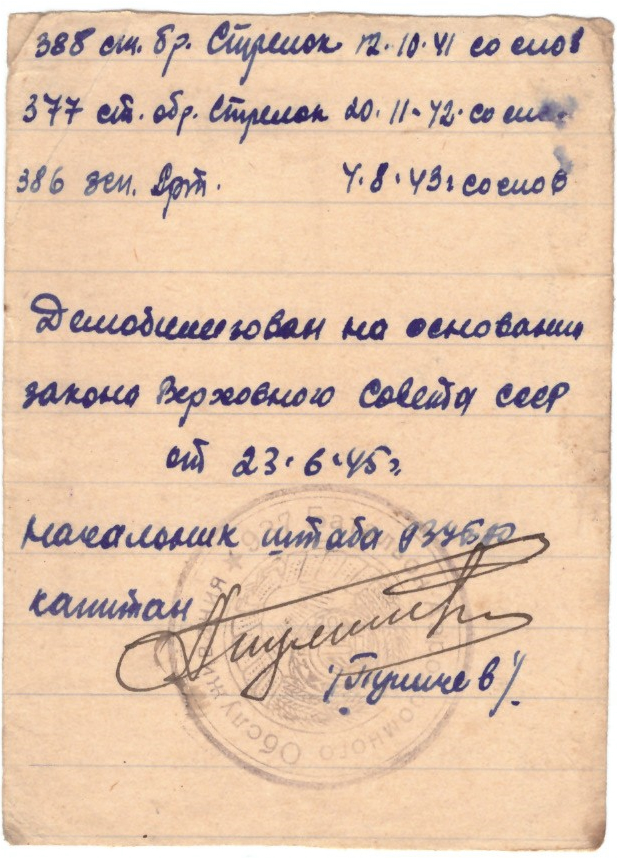 388 сп. бр. Стрелок 12.10.41 со слов
377 ст. обр. Стрелок 20.11.42. со слов
386 зен. Арт. 4.8.43г со слов
Демобилизован на основании
закона Верховного Совета СССР
от 23.6.45г.
Начальник штаба
капитан
927 Батальон Аэродромного Обслуживания